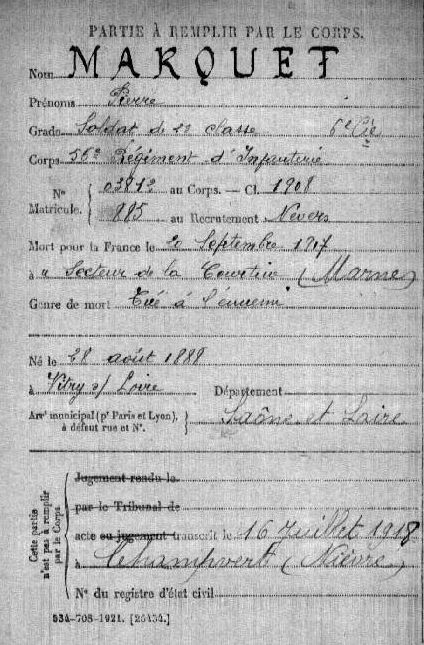 PARTIE À REMPLIR PAR LE CORPS.
Nom MARQUET
Prénoms Pierre
Grade Soldat de 2e classe 6e Cie
Corps 56e Régiment d'Infanterie
N° Matricule. { 03812 au Corps. — Cl. 1908
885 au Recrutement Nevers
Mort pour la France le 20 Septembre 1917
à " Secteur de la Courtine (Marne)
Genre de mort Tué à l'ennemi
Né le 28 août 1888
à Vitry s/ Loire Département
Arrt municipal (pr Paris et Lyon), à défaut rue et N°. } Saône et Loire
Cette partie n'est pas à remplir par le Corps
Jugement rendu le
par le Tribunal de
acte ou jugement transcrit le 16 Juillet 1918
à Champvert (Nièvre)
N° du registre d'état civil
534-708-1921. [26434.]